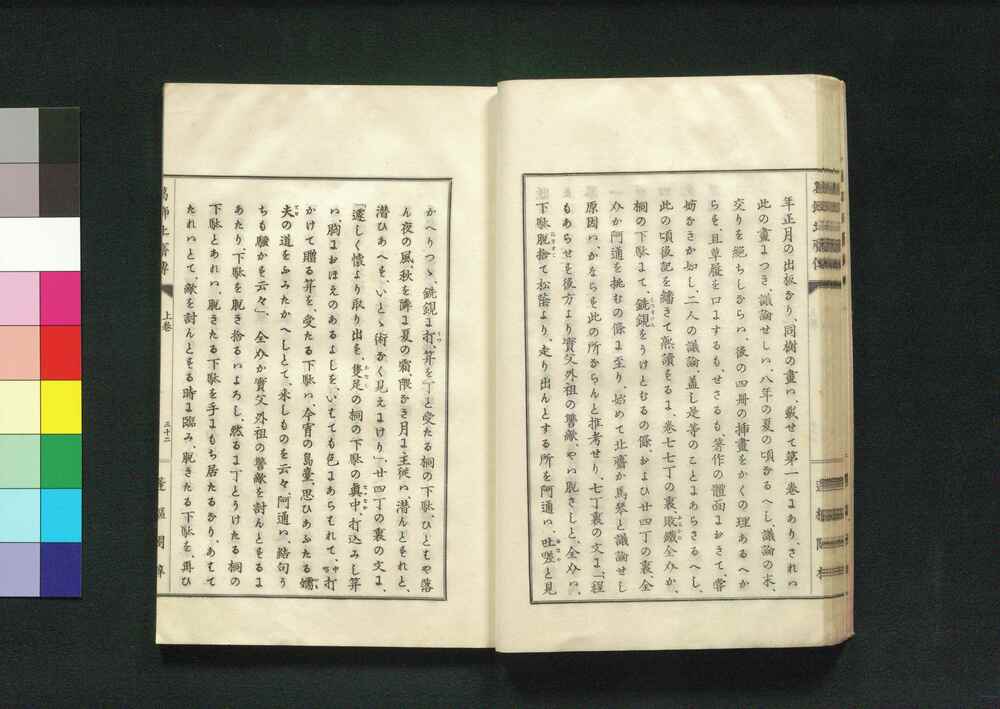 年正月の出板なり、同樹の畫ハ、載せて第一卷にあり、されハ
此の畫につき、議論せしハ、八年の夏の頃なるへし、議論の末、
交りを絶ちしならハ、後の四冊の挿畫をかくの理あるへか
らを、且草履を口にするも、せさるも著作の體面におきて、甞
妨なきか如し、二人の議論、蓋し是等のことにあらさるへし、
此の頃後記を繙きて熟讀をるに、卷七七丁の裏、敗鐵全𠆢か、
桐の下駄にて、銚鍔をうけとむるの條、および廿四丁の裏、全
𠆢か阿通を挑むの條に至り、始めて北齋か馬琴と議論せし
原因ハ、かならを此の所ならんと推考せり、七丁裏の文に「程
もあらせを後方より實父外祖の讐敵、やハ脱さしと、全𠆢ハ、
下駄脱捨て松蔭より、走り出んとする所を阿通ハ、吐嗟と見
かへりつゝ、銚鍔に打、笄を丁と受たる桐の下駄、ひともや落
ん夜の風、秋を隣に夏の霜隈なき月に主從ハ、潜んともれと、
潜ひあへを、いとゝ術なく見えにけり」、廿四丁の裏の文に、
「遽しく懐より取り出を、隻足の桐の下駄の眞中、打込みし笄
ハ、胸におほえのあるよしを、いてても色にあらもれて、打
かけて贈る笄を、受たる下駄ハ、今宵の島臺、思ひあふたる嬬
夫の道をふみたかへしとて、來しものを云々、阿通ハ、諮句う
ちも騷かを云々」、全𠆢か實父外祖の讐敵を討んともるに
あたり、下駄を脱き捨るハよろし、然るに丁とうけたる桐の
下駄とあれハ、脱きたる下駄を手にもち居たるなり、あもて
たれハとて、敵を討んともる時に臨み、脱きたる下駄を、再ひ
上卷
三十二